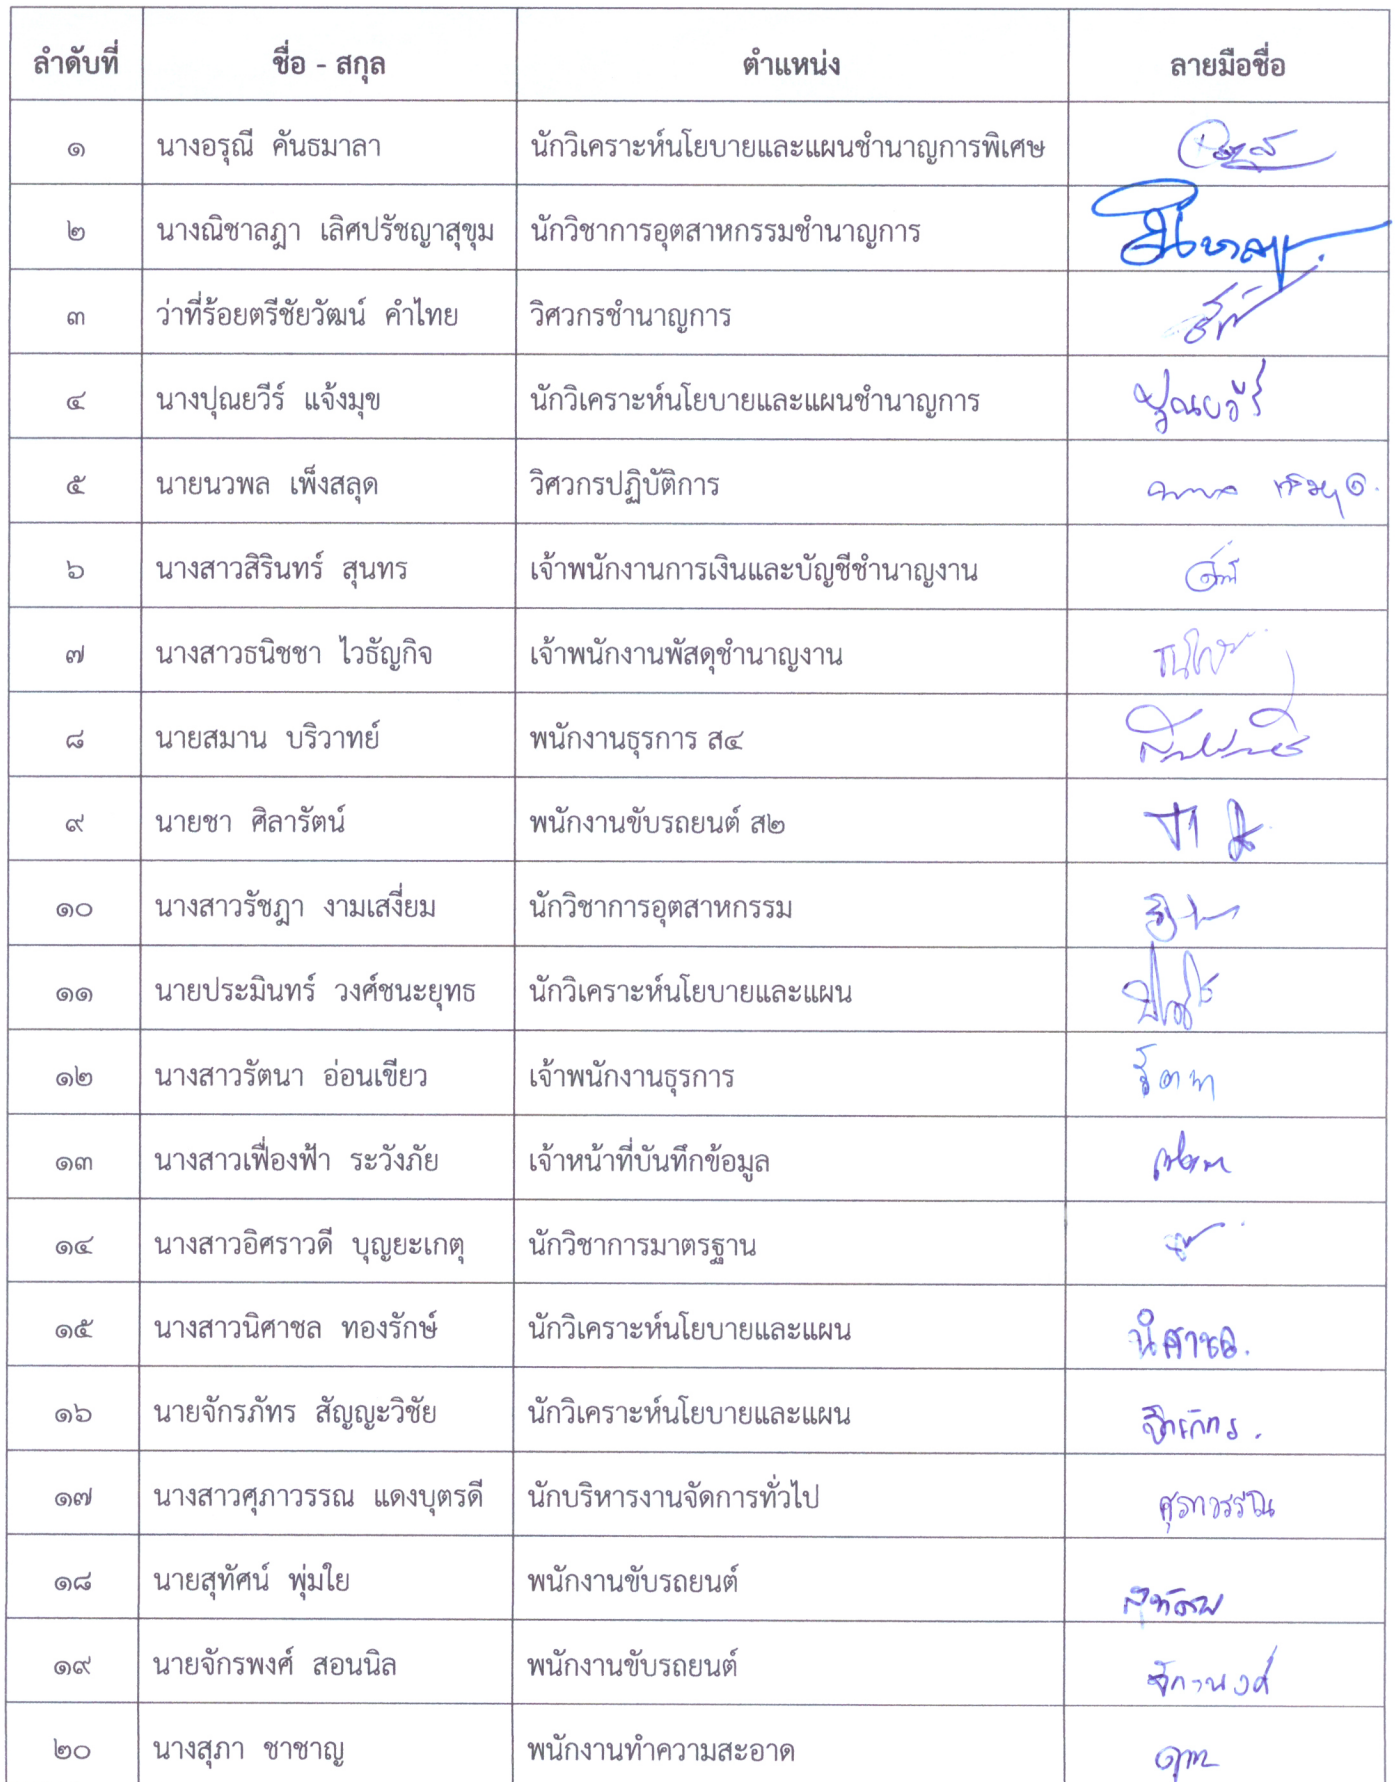 ลำดับที่ ชื่อ - สกุล ตำแหน่ง ลายมือชื่อ
๑ นางอรุณี คันธมาลา นักวิเคราะห์นโยบายและแผนชำนาญการพิเศษ
๒ นางณิชาลฎา เลิศปรัชญาสุขุม นักวิชาการอุตสาหกรรมชำนาญการ
๓ ว่าที่ร้อยตรีชัยวัฒน์ คำไทย วิศวกรชำนาญการ
๔ นางปุณยวีร์ แจ้งมุข นักวิเคราะห์นโยบายและแผนชำนาญการ ปุณยวีร์
๕ นายนวพล เพ็งสลุด วิศวกรปฏิบัติการ
๖ นางสาวสิรินทร์ สุนทร เจ้าพนักงานการเงินและบัญชีชำนาญงาน
๗ นางสาวธนิชชา ไวธัญกิจ เจ้าพนักงานพัสดุชำนาญงาน
๘ นายสมาน บริวาทย์ พนักงานธุรการ ส๔
๙ นายชา ศิลารัตน์ พนักงานขับรถยนต์ ส๒
๑๐ นางสาวรัชฎา งามเสงี่ยม นักวิชาการอุตสาหกรรม
๑๑ นายประมินทร์ วงศ์ชนะยุทธ นักวิเคราะห์นโยบายและแผน
๑๒ นางสาวรัตนา อ่อนเขียว เจ้าพนักงานธุรการ รัตนา
๑๓ นางสาวเฟื่องฟ้า ระวังภัย เจ้าหน้าที่บันทึกข้อมูล
๑๔ นางสาวอิศราวดี บุญยะเกตุ นักวิชาการมาตรฐาน
๑๕ นางสาวนิศาชล ทองรักษ์ นักวิเคราะห์นโยบายและแผน นิศาชล.
๑๖ นายจักรภัทร สัญญะวิชัย นักวิเคราะห์นโยบายและแผน จักรภัทร.
๑๗ นางสาวศุภาวรรณ แดงบุตรดี นักบริหารงานจัดการทั่วไป ศุภาวรรณ
๑๘ นายสุทัศน์ พุ่มใย พนักงานขับรถยนต์ สุทัศน์
๑๙ นายจักรพงศ์ สอนนิล พนักงานขับรถยนต์ จักรพงศ์
๒๐ นางสุภา ชาชาญ พนักงานทำความสะอาด